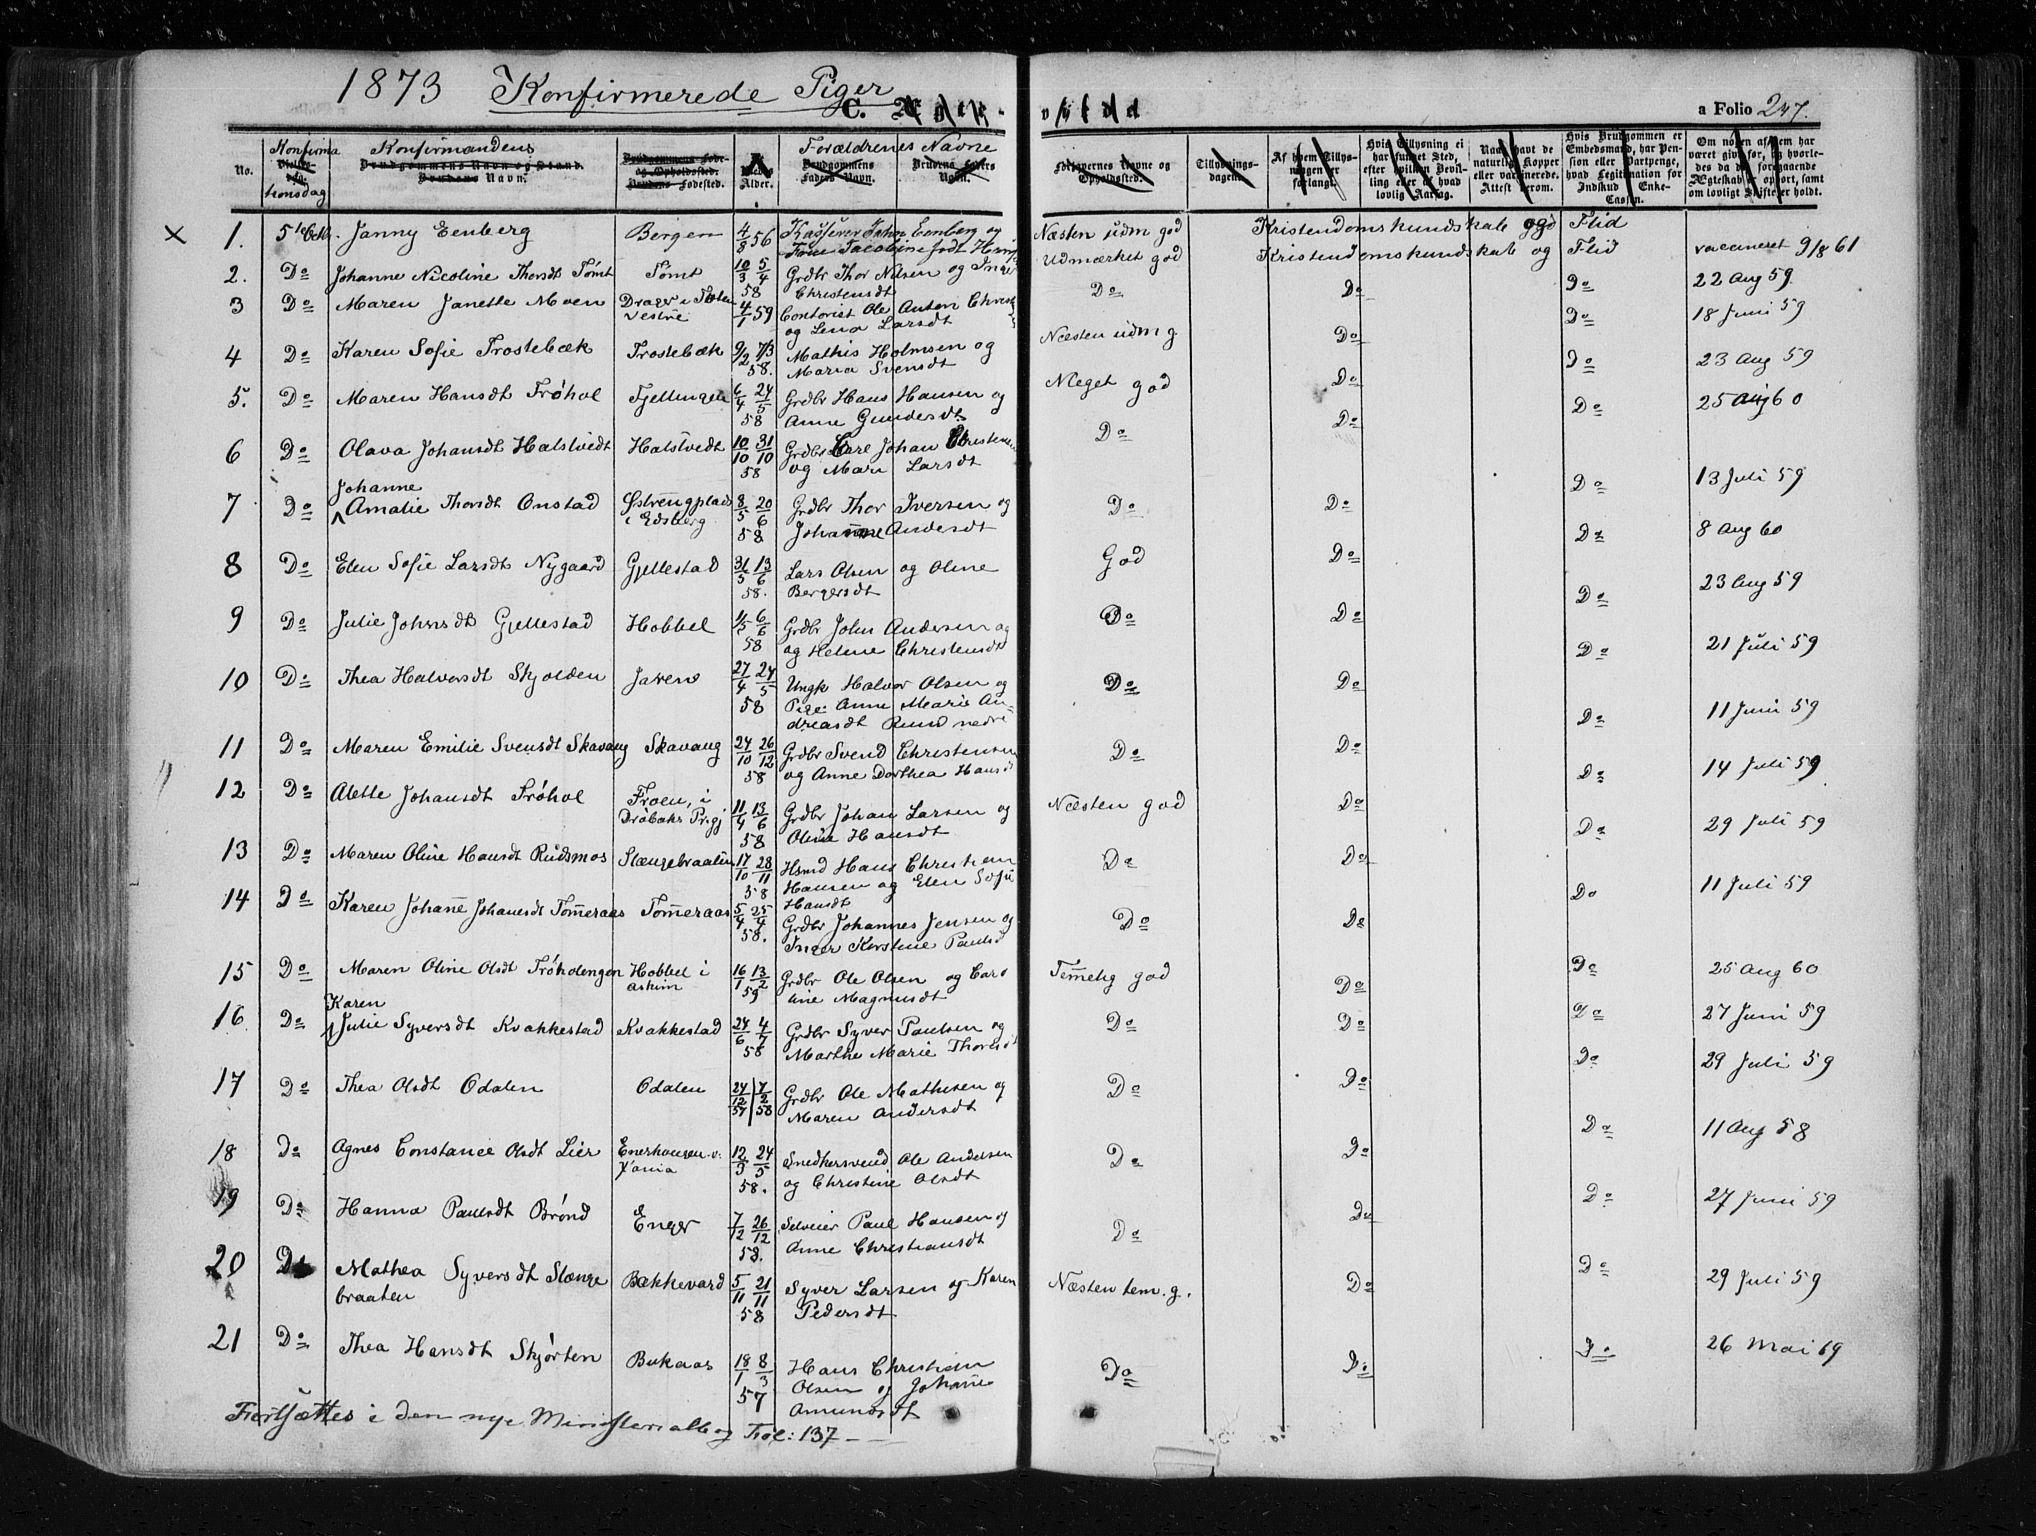 1873 Konfirmerede Piger
C.
a Folio 247.
No.
Konfirmationsdag
Konfirmandens
Brudgommens Navn og Stand.
Brudens Navn.
Brudgommens Føde- og Opholdssted.
Brudens Fødested.
Alder.
Forældrenes Navne
Brudgommens Faders Navn.
Brudens Faders Navn.
Forlovernes Navne og Opholdssted.
Tillysnings-dagen.
Af hvem Tillysningen er forlangt.
Hvis Tillysning ei har fundet Sted, efter hvilken Bevilling eller af hvad lovlig Aarsag.
Naar havt de naturlige Kopper eller vaccinerede. Attest derom.
Hvis Brudgommen er Embedsmand, har Pension eller Partpenge, hvad Legitimation for Indskud i Enke-Cassen.
Om nogen af dem har været gift før, og hvorledes da det foregaaende Ægteskab er ophørt, samt om lovligt Skifte er holdt.
1. 5te Octbr. Janny Eenberg Bergen 4/3 56 Kasserer John Eenberg og Næsten udm god Kristendomskundskab og Flid
Jacobine født vaccineret 9/8 61
2. Do Johanne Nicoline Thorsdt Tømt Tømt 10/3 5/4 58 Grdbr Thor Nilsen og Inger Christensdt Udmærket god Kristendomskundskab og Flid 22 Aug 59
3 Do Maren Janette Moen Drager i Vestre 4/1 59 Contorist Ole Anton Christ og Lena Larsdt Do Do Do 18 Juni 59
4 Do Karen Sofie Trostebæk Trostebæk 9/2 7/3 58. Mathis Holmsen og Maria Svensdt Næsten udm g Do Do 23 Aug 59
5. Do Maren Hansdt Frøhol Fjellengen 6/4 24/5 58 Grdbr Hans Hansen og Anne Gundersdt Meget god Do Do 25 Aug 60
6 Do Olava Johansdt Halstvedt Halstvedt 10/10 31/10 58 Grdbr Carl Johan Christensen og Mari Larsdt Do Do Do 13 Juli 59
7 Do Johanne Amalie Thorsdt Onstad Østreng plads i Edsberg 8/5 20/6 58 Grdbr Thor Iversen og Johanne Andersdt Do Do Do 8 Aug 60
8 Do Elen Sofie Larsdt Nygaard Gjellestad 31/5 13/6 58. Lars Olsen og Oline Bergersdt God Do Do 23 Aug 59
9 Do Julie Johnsdt Gjellestad Hobbel 1/5 6/6 58 Grdbr John Andersen og og Helene Christensdt Do Do Do 21 Juli 59
10 Do Thea Halvorsdt Skjolden Jaren 27/4 24/5 58 Ungk Halvor Olsen og Pige Anne Marie Andreasdt Rund nedre Do Do Do 11 Juni 59
11 Do Maren Emilie Svensdt Skavang Skavang 24/10 26/12 58 Grdbr Svend Christensen og Anne Dorthea Hansdt Do Do Do 14 Juli 59
12 Do Alette Johansdt Frøhol Froen, i Drøbaks Prgj 11/4 13/6 58 Grdbr Johan Larsen og Oline Hansdt Næsten god Do Do 29 Juli 59
13 Do Maren Oline Hansdt Rudsmos Slængebraaten 17/10 28/11 58 Hsmd Hans Christian Hansen og Elen Sofie Hansdt Do Do Do 11 Juli 59
14 Do Karen Johanne Johansdt Tomeraas Tomeraas 5/4 25/4 58. Grdbr Johannes Jensen og Inger Kerstine Paulsd Do Do Do 25 Aug 60
15 Do Maren Oline Olsdt Frøholengen Hobbel i Askim 16/1 13/2 59 Grdbr Ole Olsen og Caroline Magnusdt Temelig god Do Do 27 Juni 59
16 Do Karen Julie Syversdt Kvakkestad Kvakkestad 24/6 4/7 58 Grdbr Syver Paulsen og Marthe Marie Thoresdt Do Do Do 29 Juli 59
17 Do Thea Olsdt Odalen Odalen 24/12 57 7/2 58 Grdbr Ole Mathisen og Maren Andersdt Do Do Do 11 Aug 58
18 Do Agnes Constance Olsdt Lier Enerhaugen v. Xania 12/3 24/5 58. Snedkersvend Ole Andersen og Christine Olsdt Do Do Do 27 Juni 59
19 Do Hanna Paulsdt Brønd Enger 7/12 26/12 58. Selveier Paul Hansen og Anne Christiansdt Do Do Do 29 Juli 59
20 Do Mathea Syversdt Slængebraaten Bakkevard 5/11 21/11 58 Syver Larsen og Karen Pedersdt Næsten tem. g. Do Do 26 Mai 69
21 Do Thea Hansdt Skjørten Bukaas 18/1 8/3 57 Hans Christian Olsen og Johanne Amundsdt Do Do Do
Fortsættes i den nye Ministerialbog Fol: 137